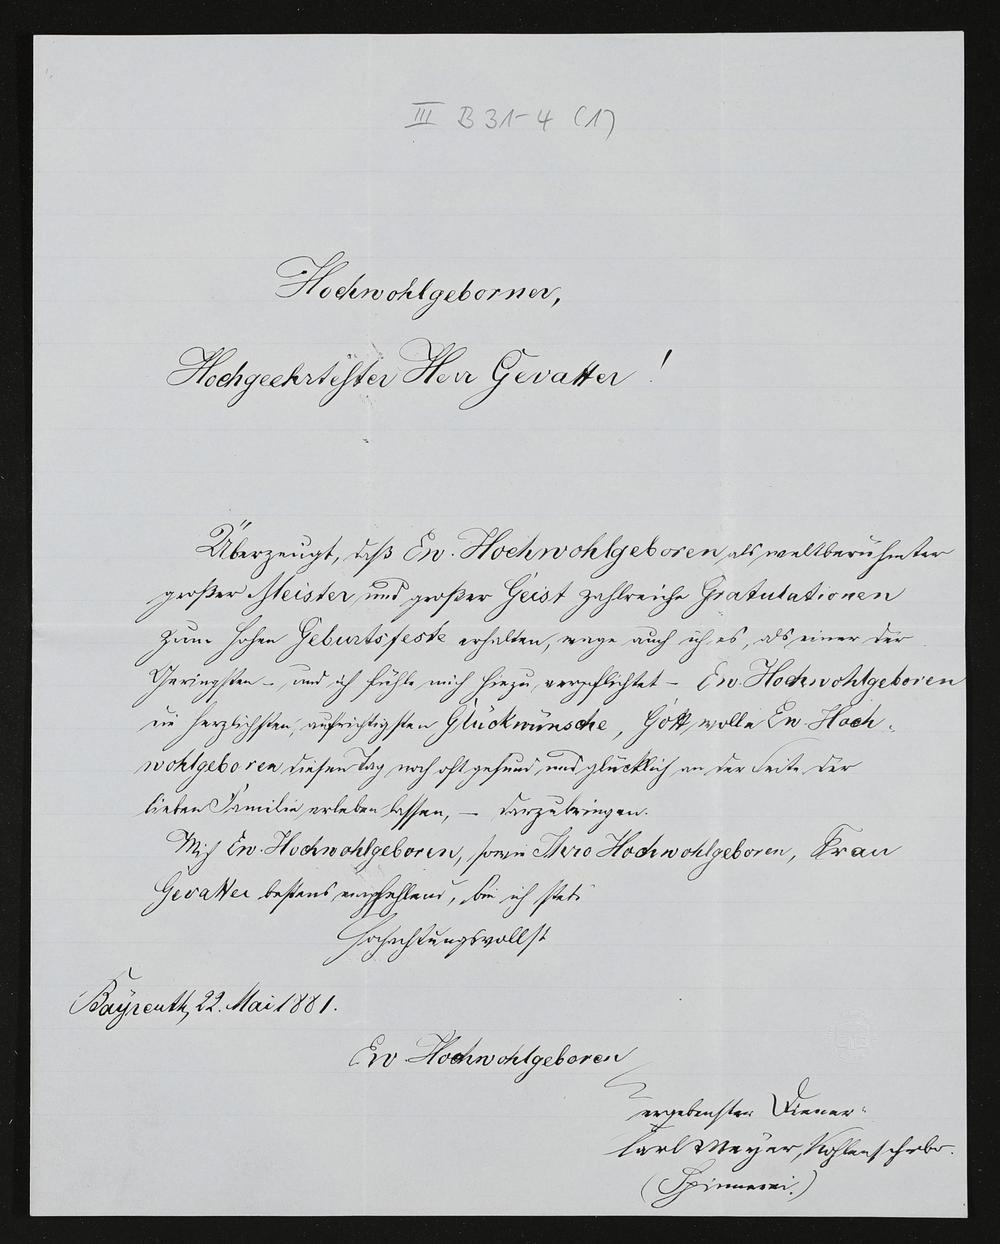 III B 31-4 (1)
Hochwohlgeborner,
Hochgeehrtester Herr Gevatter!
Überzeugt, daß Ew. Hochwohlgeboren als weltberühmter
großer Meister und großer Geist zahlreiche Gratulationen
zum hohen Geburtsfeste erhalten, wage auch ich es, als einer der
Geringsten – und ich fühle mich hiezu verpflichtet – Ew. Hochwohlgeboren
die herzlichsten, aufrichtigsten Glückwünsche, Gott wolle Ew. Hoch-
wohlgeboren diesen Tag noch oft gesund und glücklich an der Seite der
lieben Familie erleben lassen, – darzubringen.
Mich Ew. Hochwohlgeboren, sowie Ihro Hochwohlgeboren, Frau
Gevatter bestens empfehlend, bin ich stets
Hochachtungsvollst
Bayreuth, 22. Mai 1881.
Ew Hochwohlgeboren
ergebenster Diener
Carl Meyer,
(Spinnerei.)